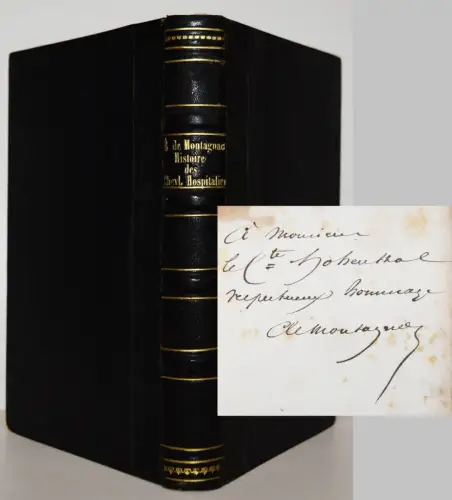 de Montagnac
Histoire
des
Chevl. Hospitalie
À Monsieur
le Cte Hohenthal
respectueux hommage
de Montagnac